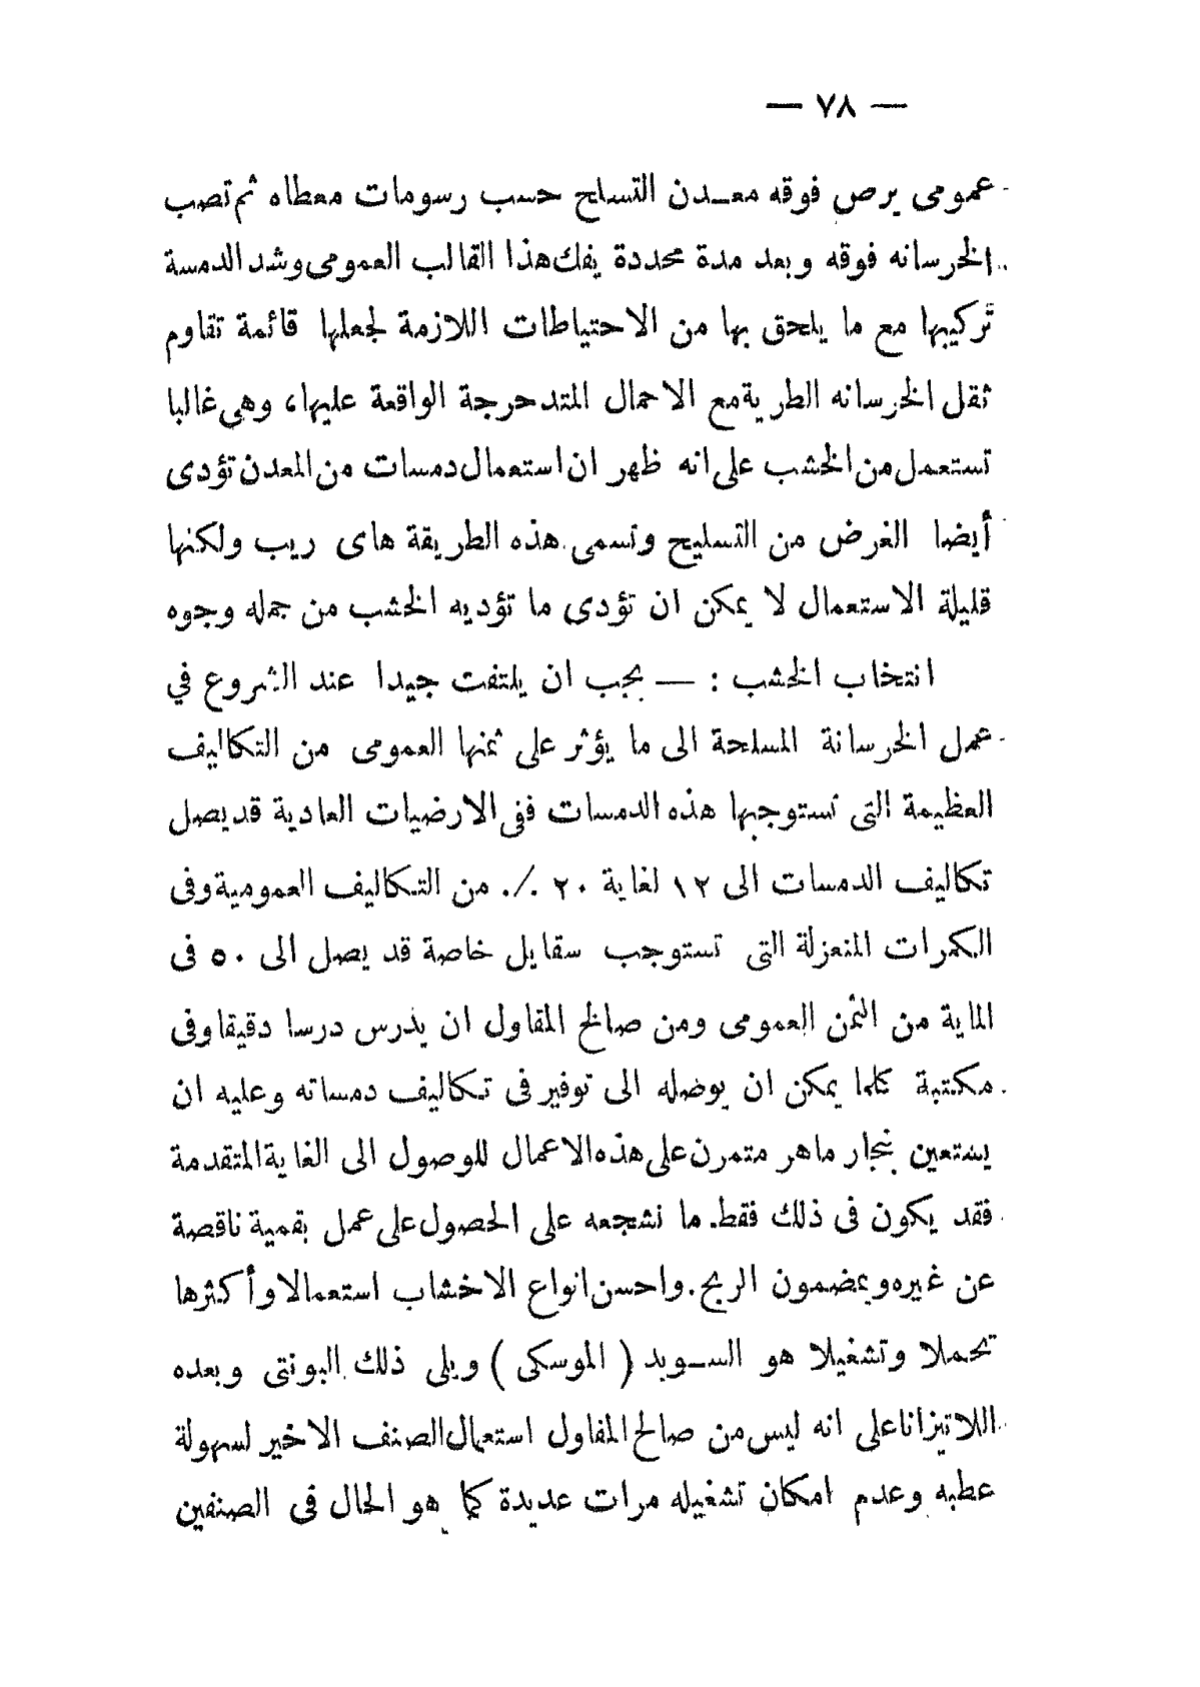 — ٧٨ —
عمومى يرص فوقه معدن التسلح حسب رسومات معطاه ثم تصب
الخرسانه فوقه وبعد مدة محددة يفك هذا القالب العمومى وشد الدمسة
تركيبها مع ما يلحق بها من الاحتياطات اللازمة لجعلها قائمة تقاوم
ثقل الخرسانه الطرية مع الاحمال المتدحرجة الواقعة عليها، وهى غالبا
تستعمل من الخشب على انه ظهر ان استعمال دمسات من المعدن تؤدى
أيضا الغرض من التسليح وتسمى هذه الطريقة هاى ريب ولكنها
قليلة الاستعمال لا يمكن ان تؤدى ما تؤديه الخشب من جمله وجوه
انتخاب الخشب : — يجب ان يلتفت جيدا عند الشروع في
عمل الخرسانة المسلحة الى ما يؤثر على ثمنها العمومى من التكاليف
العظيمة التى تستوجبها هذه الدمسات ففى الارضيات العادية قد يصل
تكاليف الدمسات الى ١٢ لغاية ٢٠ ٪ من التكاليف العمومية وفى
الكمرات المنعزلة التى تستوجب سقايل خاصة قد يصل الى ٥٠ فى
الماية من الثمن العمومى ومن صالح المقاول ان يدرس درسا دقيقا وفى
مكتبة كلما يمكن ان يوصله الى توفير فى تكاليف دمساته وعليه ان
يستعين بنجار ماهر متمرن على هذه الاعمال للوصول الى الغاية المتقدمة
فقد يكون فى ذلك فقط ما نشجعه على الحصول على عمل بقمية ناقصة
عن غيره وبمضمون الربح. واحسن انواع الاخشاب استعمالا وأكثرها
تحملا وتشغيلا هو السويد ( الموسكى ) ويلى ذلك البونتى وبعده
اللاتيزانا على انه ليس من صالح المقاول استعمال الصنف الاخير لسهولة
عطبه وعدم امكان تشغيله مرات عديدة كما هو الحال فى الصنفين